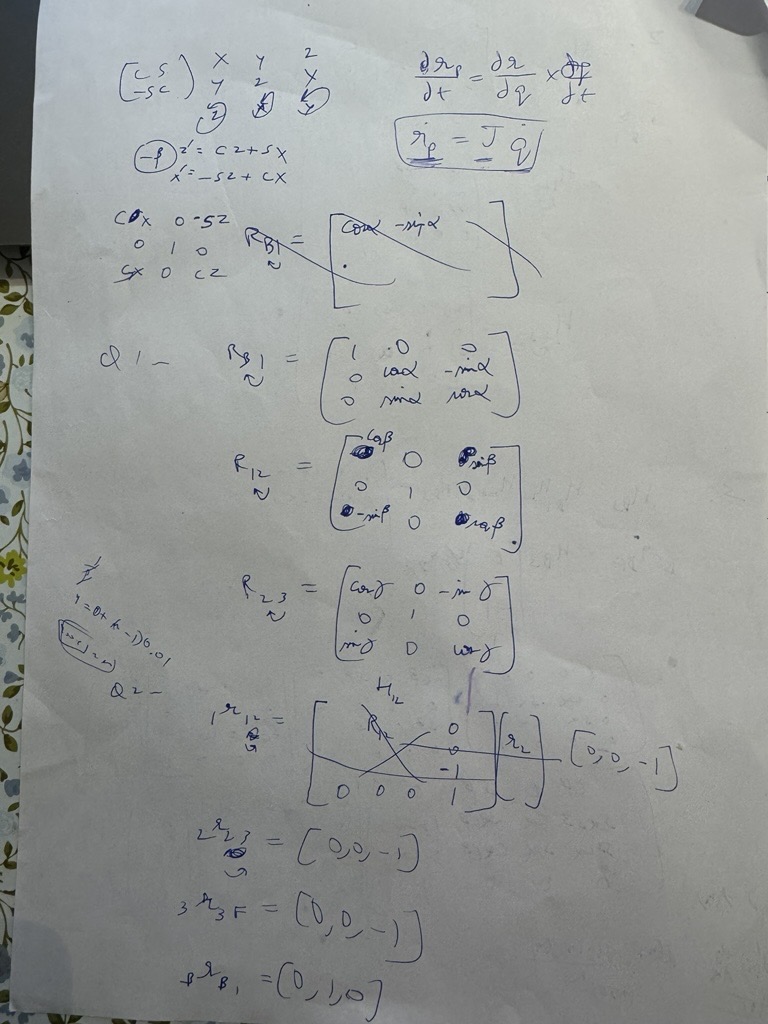 [c s  x y z
-s c] y z x
z x y
-β z' = cz + sx
x' = -sz + cx
∂r_p/∂t = ∂r/∂q × ∂q/∂t
ṙ_p = J q̇
cx 0 -sz
0 1 0
sx 0 cz
R_B1 = [cosα -sinα]
Q1 - R_B1 = [1 0 0
0 cosα -sinα
0 sinα cosα]
R_12 = [cosβ 0 sinβ
0 1 0
-sinβ 0 cosβ]
R_23 = [cosγ 0 -sinγ
0 1 0
sinγ 0 cosγ]
-1)0.01
Q2 -
H_12
1r_12 = [R_12 0
0
-1
0 0 0 1] [r_2] [0,0,-1]
2r_23 = [0,0,-1]
3r_3F = [0,0,-1]
Br_B1 = [0,1,0]